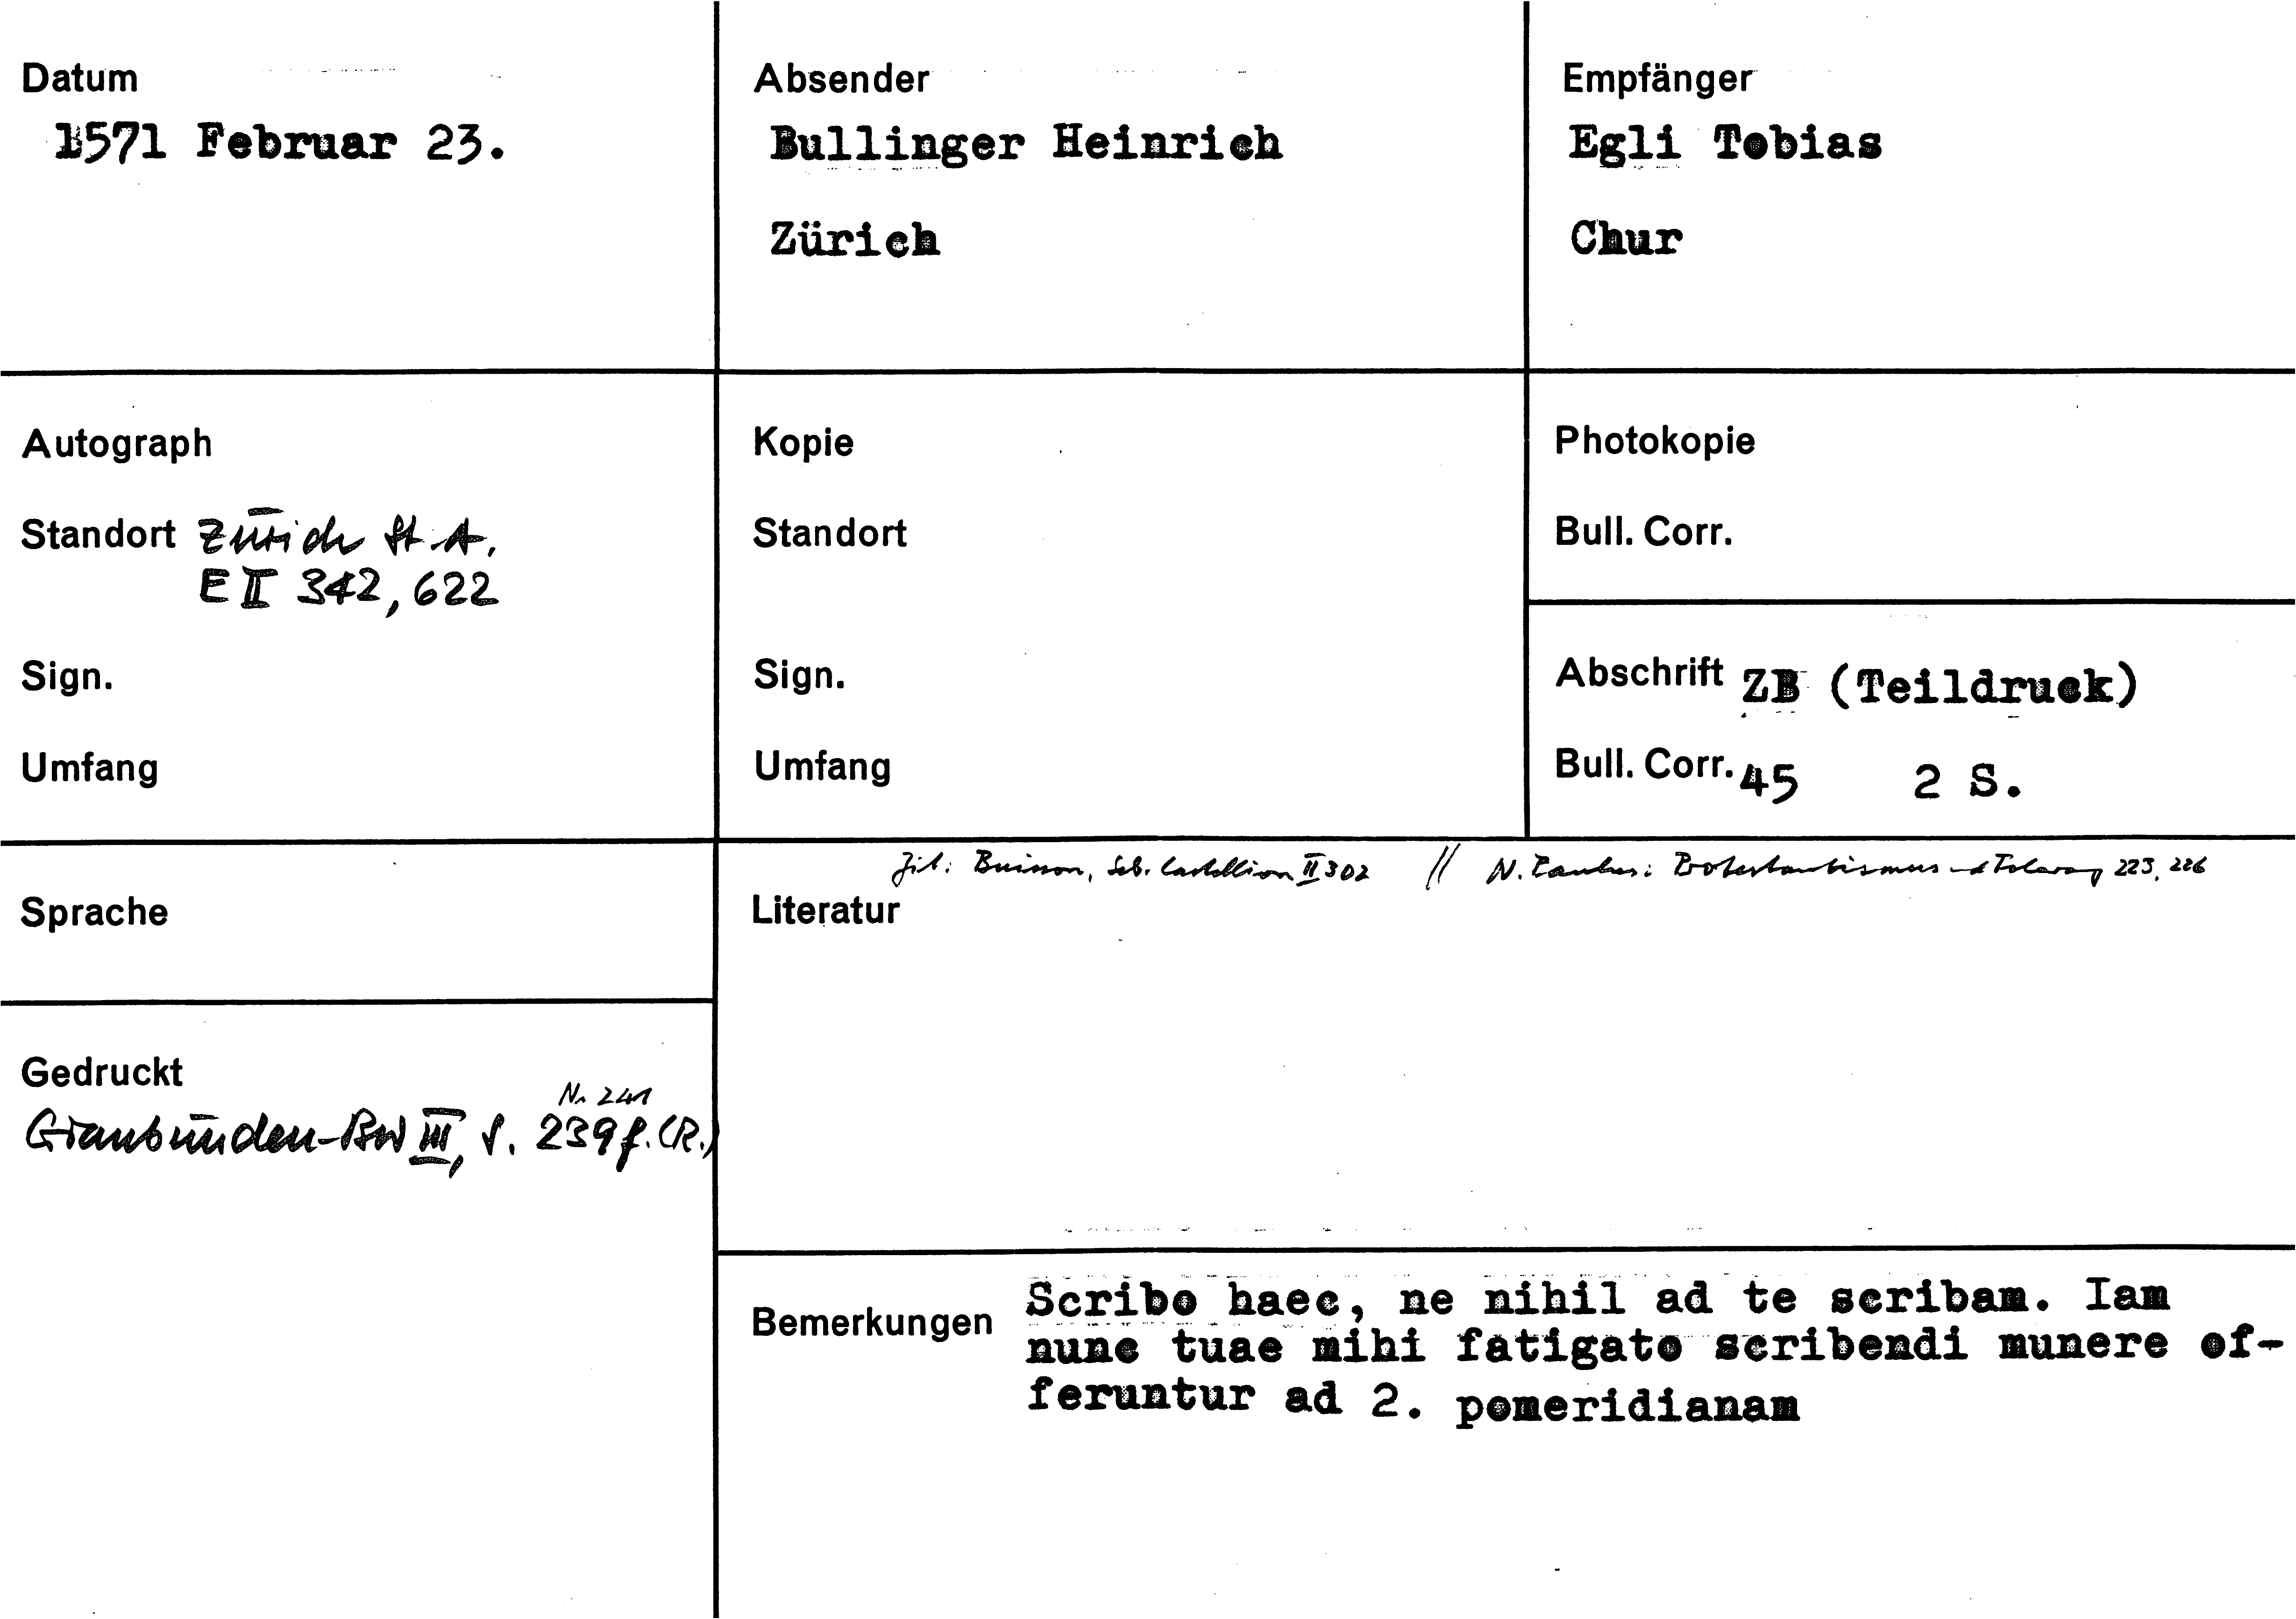 Datum
1571 Februar 23.
Absender
Bullinger Heinrich
Zürich
Empfänger
Egli Tobias
Chur
Autograph
Standort Zürich St.A.
E II 342, 622
Sign.
Umfang
Kopie
Standort
Sign.
Umfang
Photokopie
Bull. Corr.
Abschrift ZB (Teildruck)
Bull. Corr. 45 2 S.
Sprache
Gedruckt
Nr 241
Graubünden-BW III, S. 239f. (R.)
Zit: Buisson, Seb. Castellion II 302 // N. Paulus: Protestantismus und Toleranz 223, 226
Literatur
Bemerkungen
Scribo haec, ne nihil ad te scribam. Iam
nunc tuae mihi fatigato scribendi munere of-
feruntur ad 2. pomeridianam